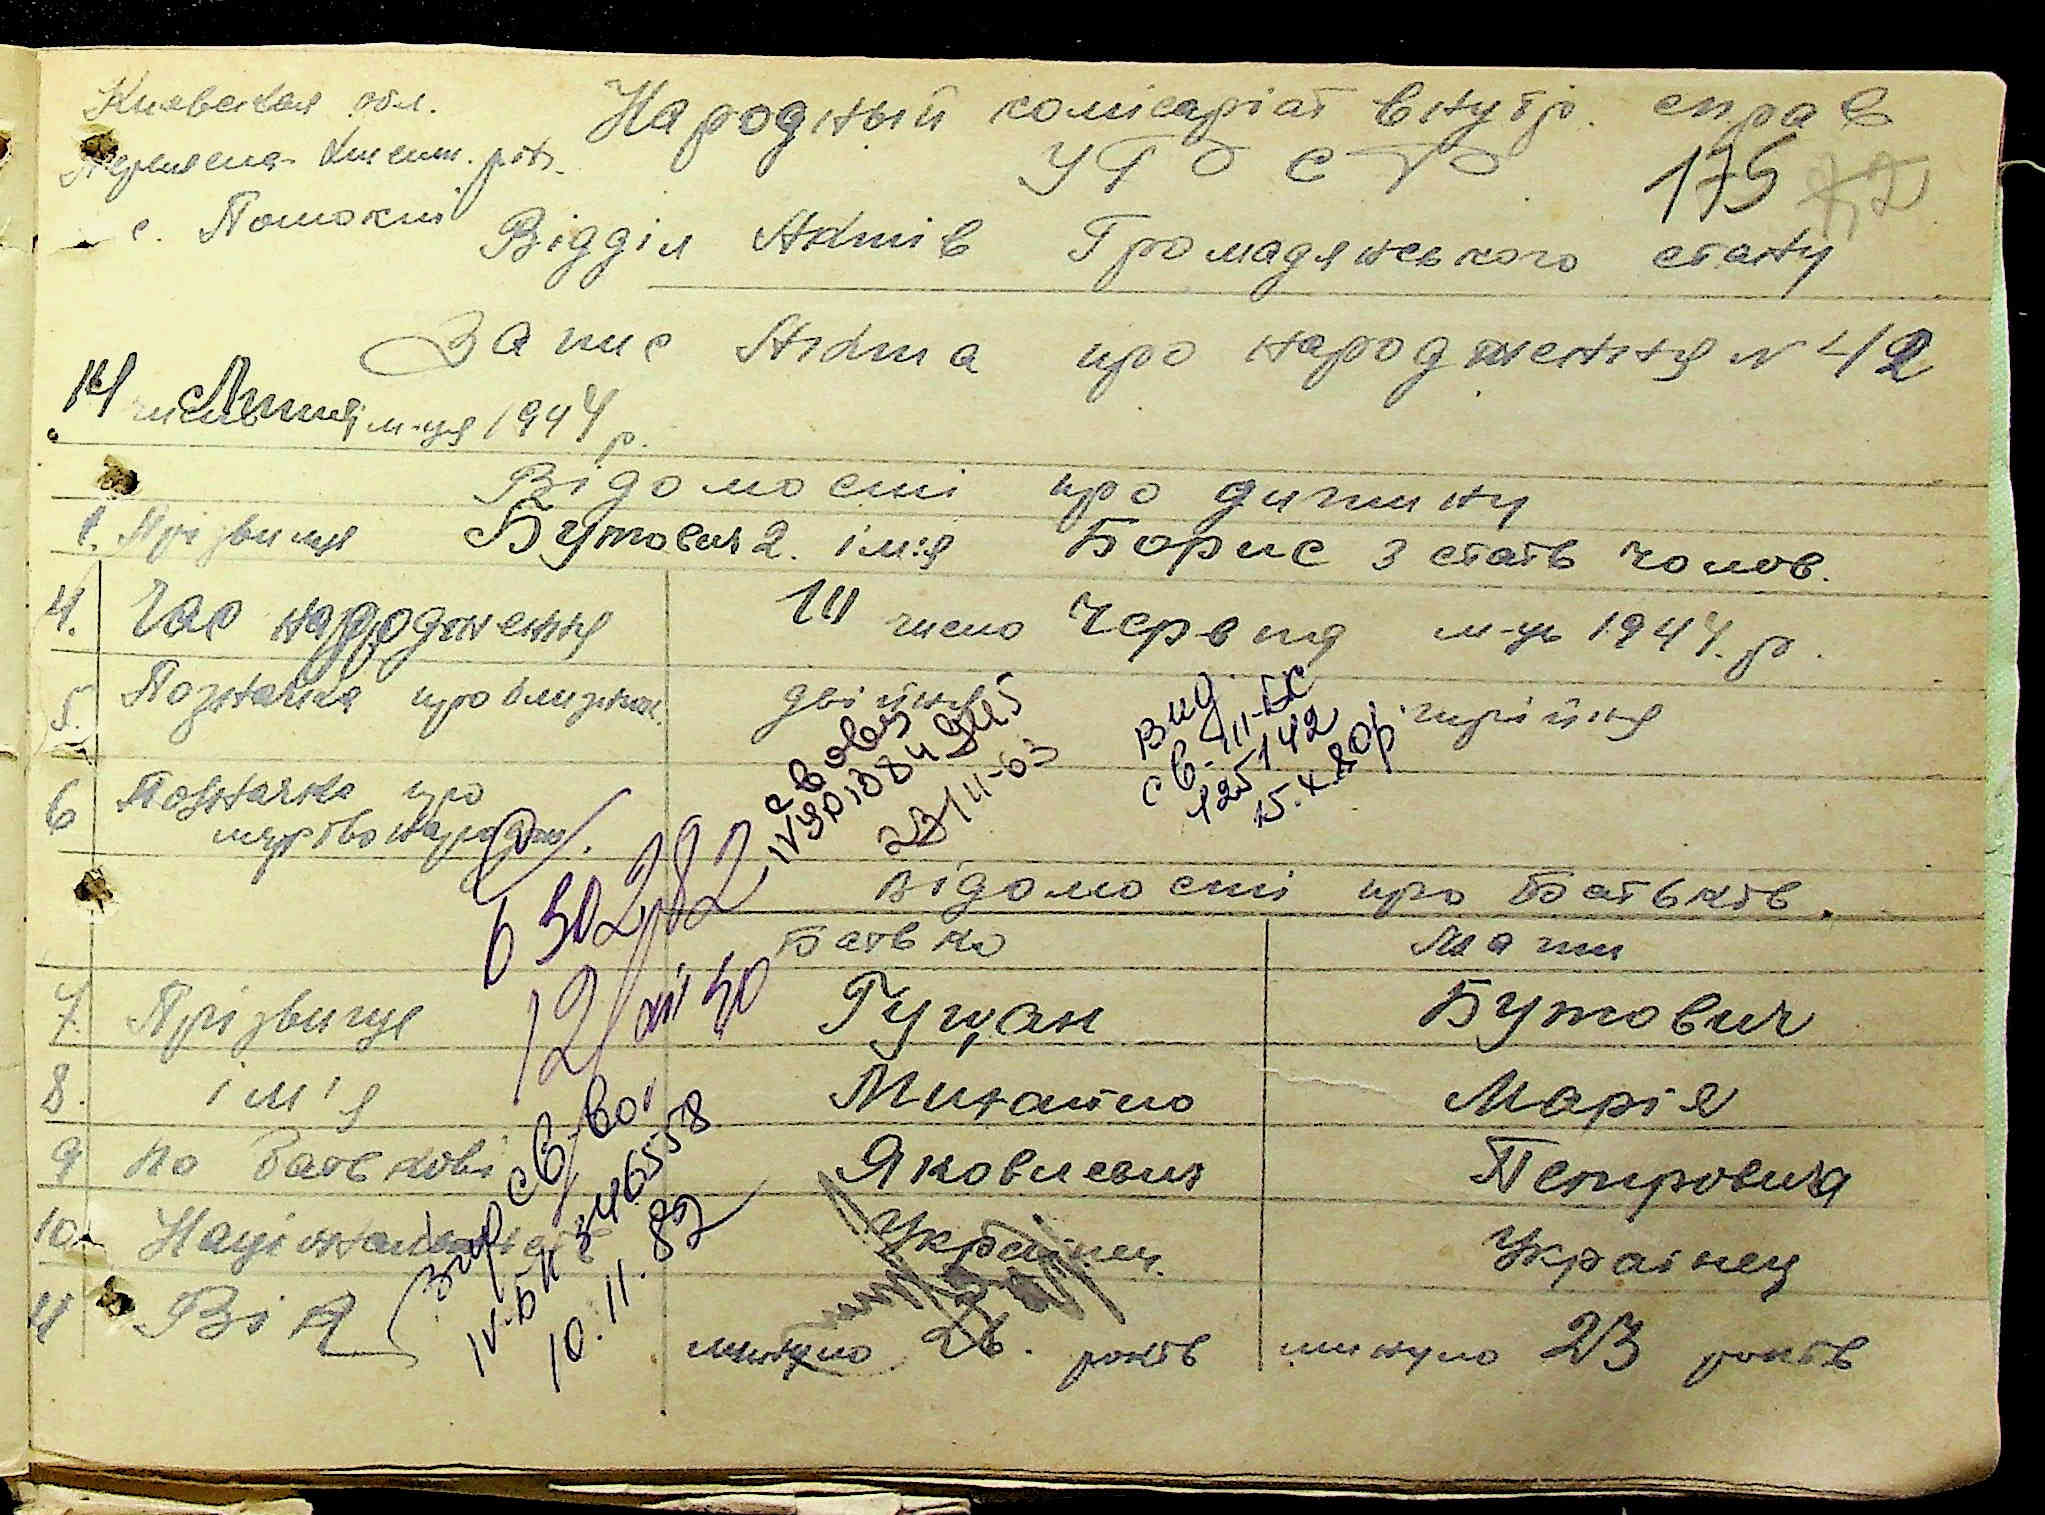 Киевская обл. Народный комісаріат внутр. справ
УРСР 175
с. Потоки
Відділ Актів Громадянського стану
Запис Акта про народження N 42
14 Липня м-ця 1944 р.
Відомості про дитину
1. Прізвище Бутович 2. ім'я Борис 3 стать чолов.
4. Час народження число Червня м-ць 1944. р.
5. Позначка про близнюк. двійня трійня
6 Позначка про
мертвонародж.
Вид
св. III-БК
125142
15.X.80р
23/II-63
502182
12/XII 50
Відомості про батьків.
Батько Мати
7. Прізвище Гуцан Бутович
8. ім'я Михайло Марія
9 по Батькові Яковлевич Петровича
10. Національність Українец. Украінец
11 Вік минуло 26. років минуло 23 років
св-во
IV-БК 346558
10.11.82